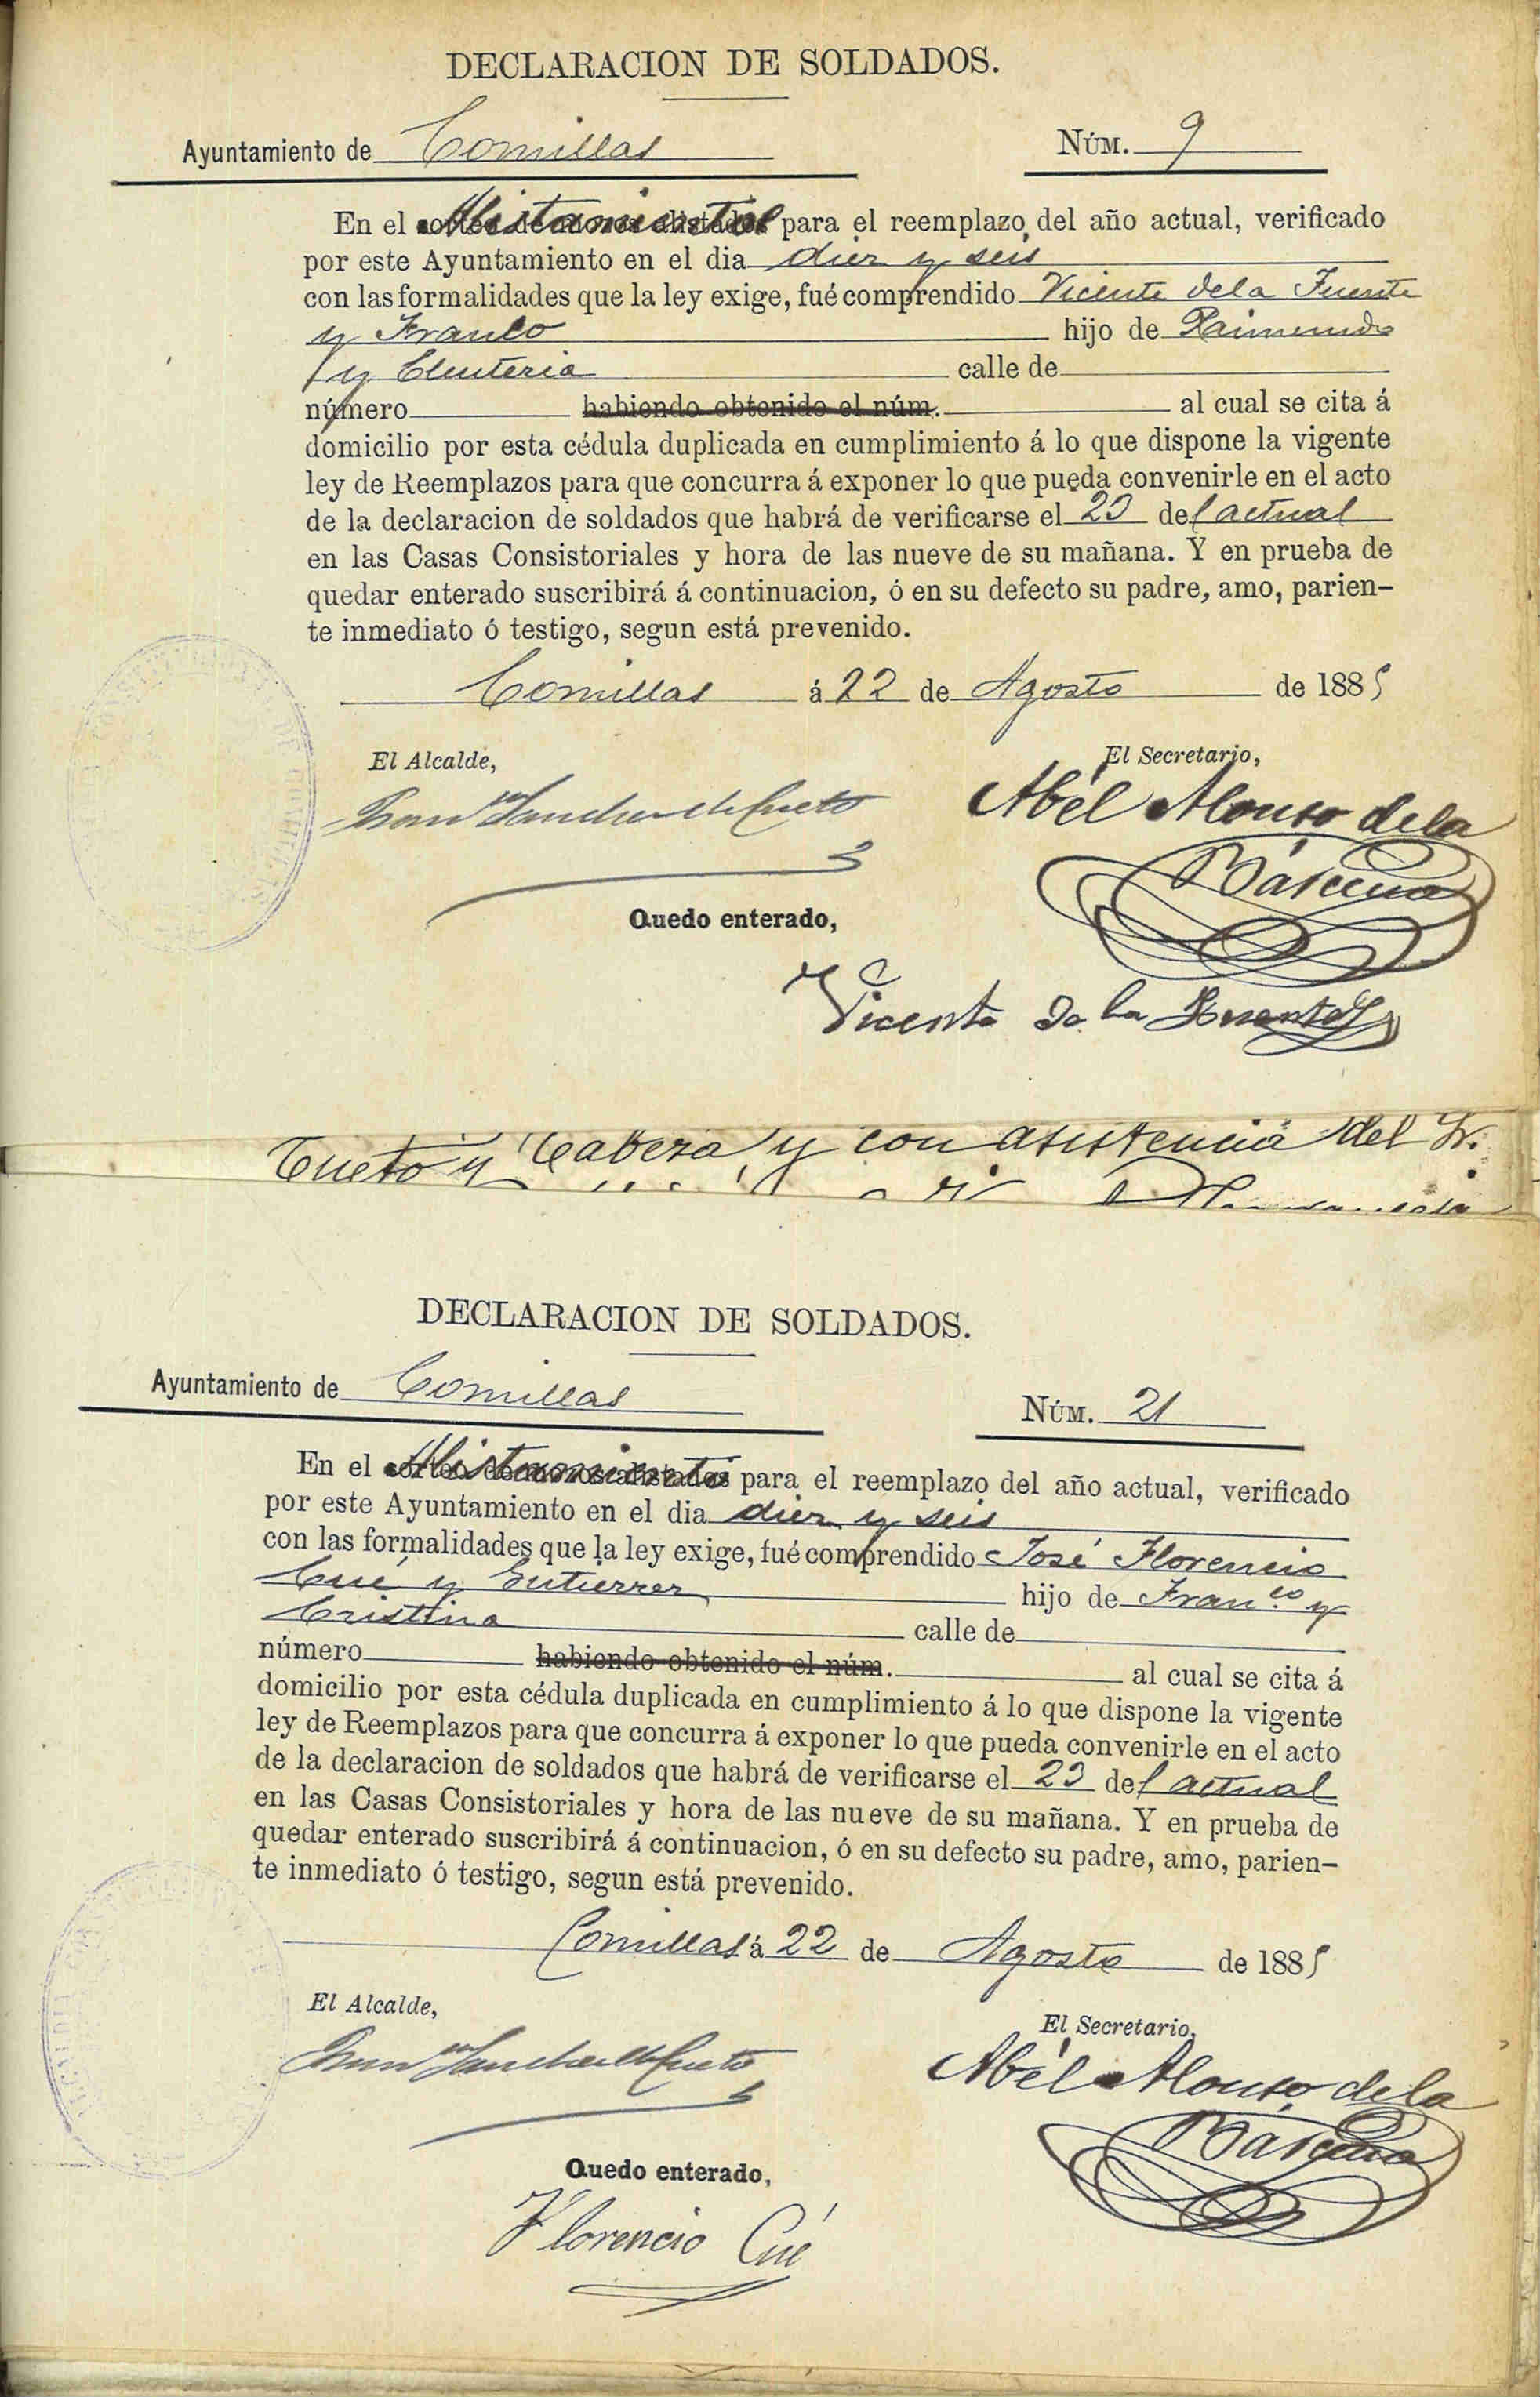 DECLARACION DE SOLDADOS.
Ayuntamiento de Comillas NÚM. 9
En el Alistamiento para el reemplazo del año actual, verificado
por este Ayuntamiento en el dia diez y seis
con las formalidades que la ley exige, fué comprendido Vicente de la Fuente
y Franco hijo de Raimundo
y Eleuteria calle de
número habiendo obtenido el núm. al cual se cita á
domicilio por esta cédula duplicada en cumplimiento á lo que dispone la vigente
ley de Reemplazos para que concurra á exponer lo que pueda convenirle en el acto
de la declaracion de soldados que habrá de verificarse el 23 del actual
en las Casas Consistoriales y hora de las nueve de su mañana. Y en prueba de
quedar enterado suscribirá á continuacion, ó en su defecto su padre, amo, parien-
te inmediato ó testigo, segun está prevenido.
Comillas á 22 de Agosto de 1885
El Alcalde, El Secretario,
Sanchez de Cueto Abél Alonso de la
Bárcena
Quedo enterado,
Vicente de la Fuente
Cueto y Cabeza y con asistencia del Sr.
DECLARACION DE SOLDADOS.
Ayuntamiento de Comillas NÚM. 21
En el Alistamiento para el reemplazo del año actual, verificado
por este Ayuntamiento en el dia diez y seis
con las formalidades que la ley exige, fué comprendido José Florencio
Cué y Gutierrez hijo de Fran.co y
Cristina calle de
número habiendo obtenido el núm. al cual se cita á
domicilio por esta cédula duplicada en cumplimiento á lo que dispone la vigente
ley de Reemplazos para que concurra á exponer lo que pueda convenirle en el acto
de la declaracion de soldados que habrá de verificarse el 23 del actual
en las Casas Consistoriales y hora de las nueve de su mañana. Y en prueba de
quedar enterado suscribirá á continuacion, ó en su defecto su padre, amo, parien-
te inmediato ó testigo, segun está prevenido.
Comillas á 22 de Agosto de 1885
El Alcalde, El Secretario,
Sanchez de Cueto Abél Alonso de la
Bárcena
Quedo enterado,
Florencio Cué